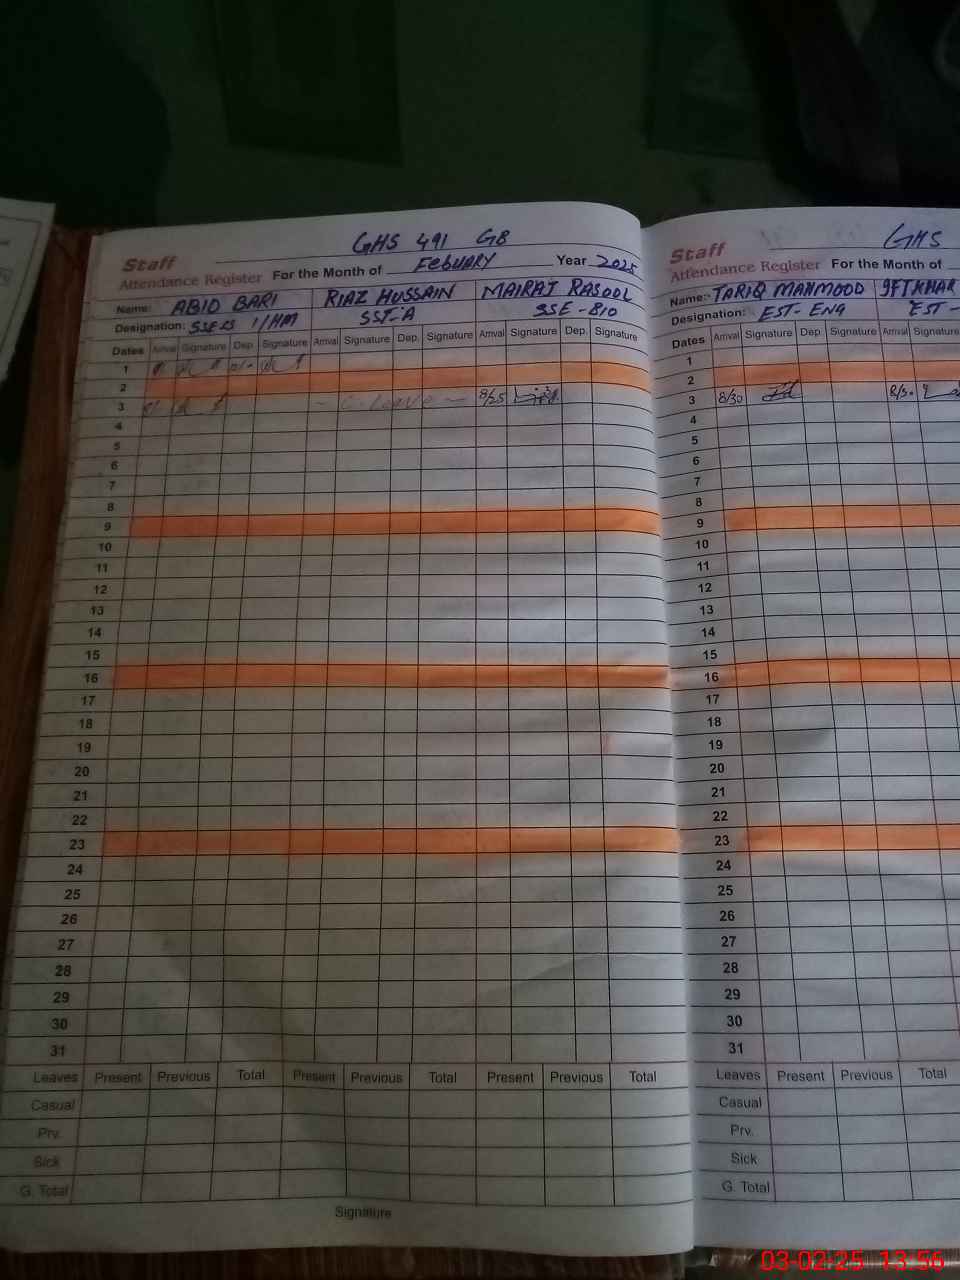 GHS 491 GB
Staff
Attendance Register For the Month of Febuary Year 2025
Name: ABID BARI RIAZ HUSSAIN MAIRAJ RASOOL
Designation: SST-A SSE-BIO
Dates Arrival Signature Dep. Signature Arrival Signature Dep. Signature Arrival Signature Dep. Signature
1
2
3 C-Leave 8/25
4
5
6
7
8
9
10
11
12
13
14
15
16
17
18
19
20
21
22
23
24
25
26
27
28
29
30
31
Leaves Present Previous Total Present Previous Total Present Previous Total
Casual
Prv.
Sick
G. Total
Signature
GHS
Staff
Attendance Register For the Month of
Name:- TARIQ MAHMOOD IFTKHAR
Designation: EST-ENG EST-
Dates Arrival Signature Dep. Signature Arrival Signature
1
2
3 8/30 8/30
4
5
6
7
8
9
10
11
12
13
14
15
16
17
18
19
20
21
22
23
24
25
26
27
28
29
30
31
Leaves Present Previous Total
Casual
Prv.
Sick
G. Total
03-02-25 13:56